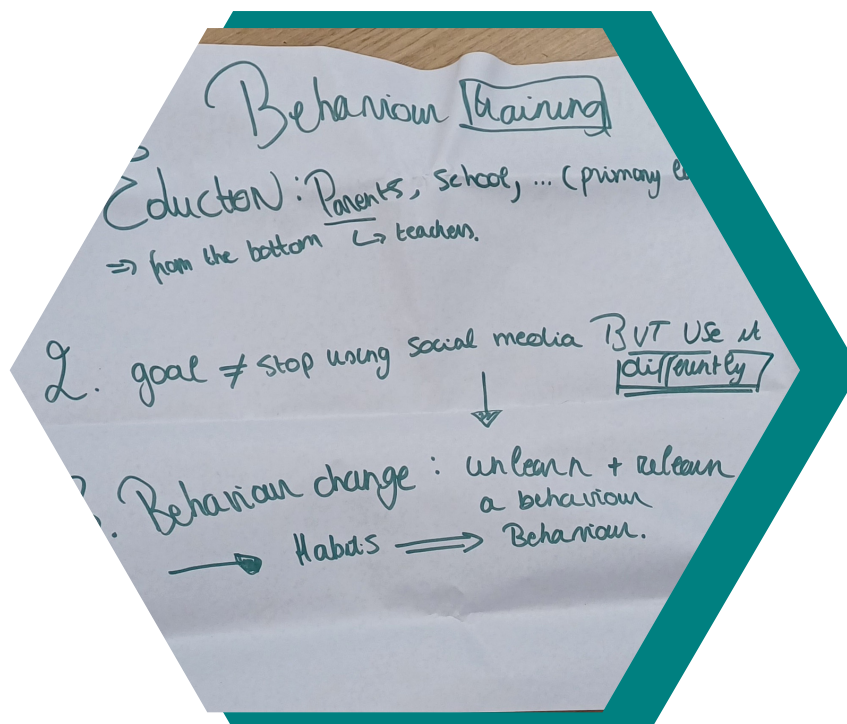 Behaviour training
EductioN: Parents, school, ... (primary
=> from the bottom ↳ teachers.
2. goal ≠ stop using social media BUT USe it
differently
. Behaviour change : unlearn + relearn
a behaviour
→ Habits => Behaviour.